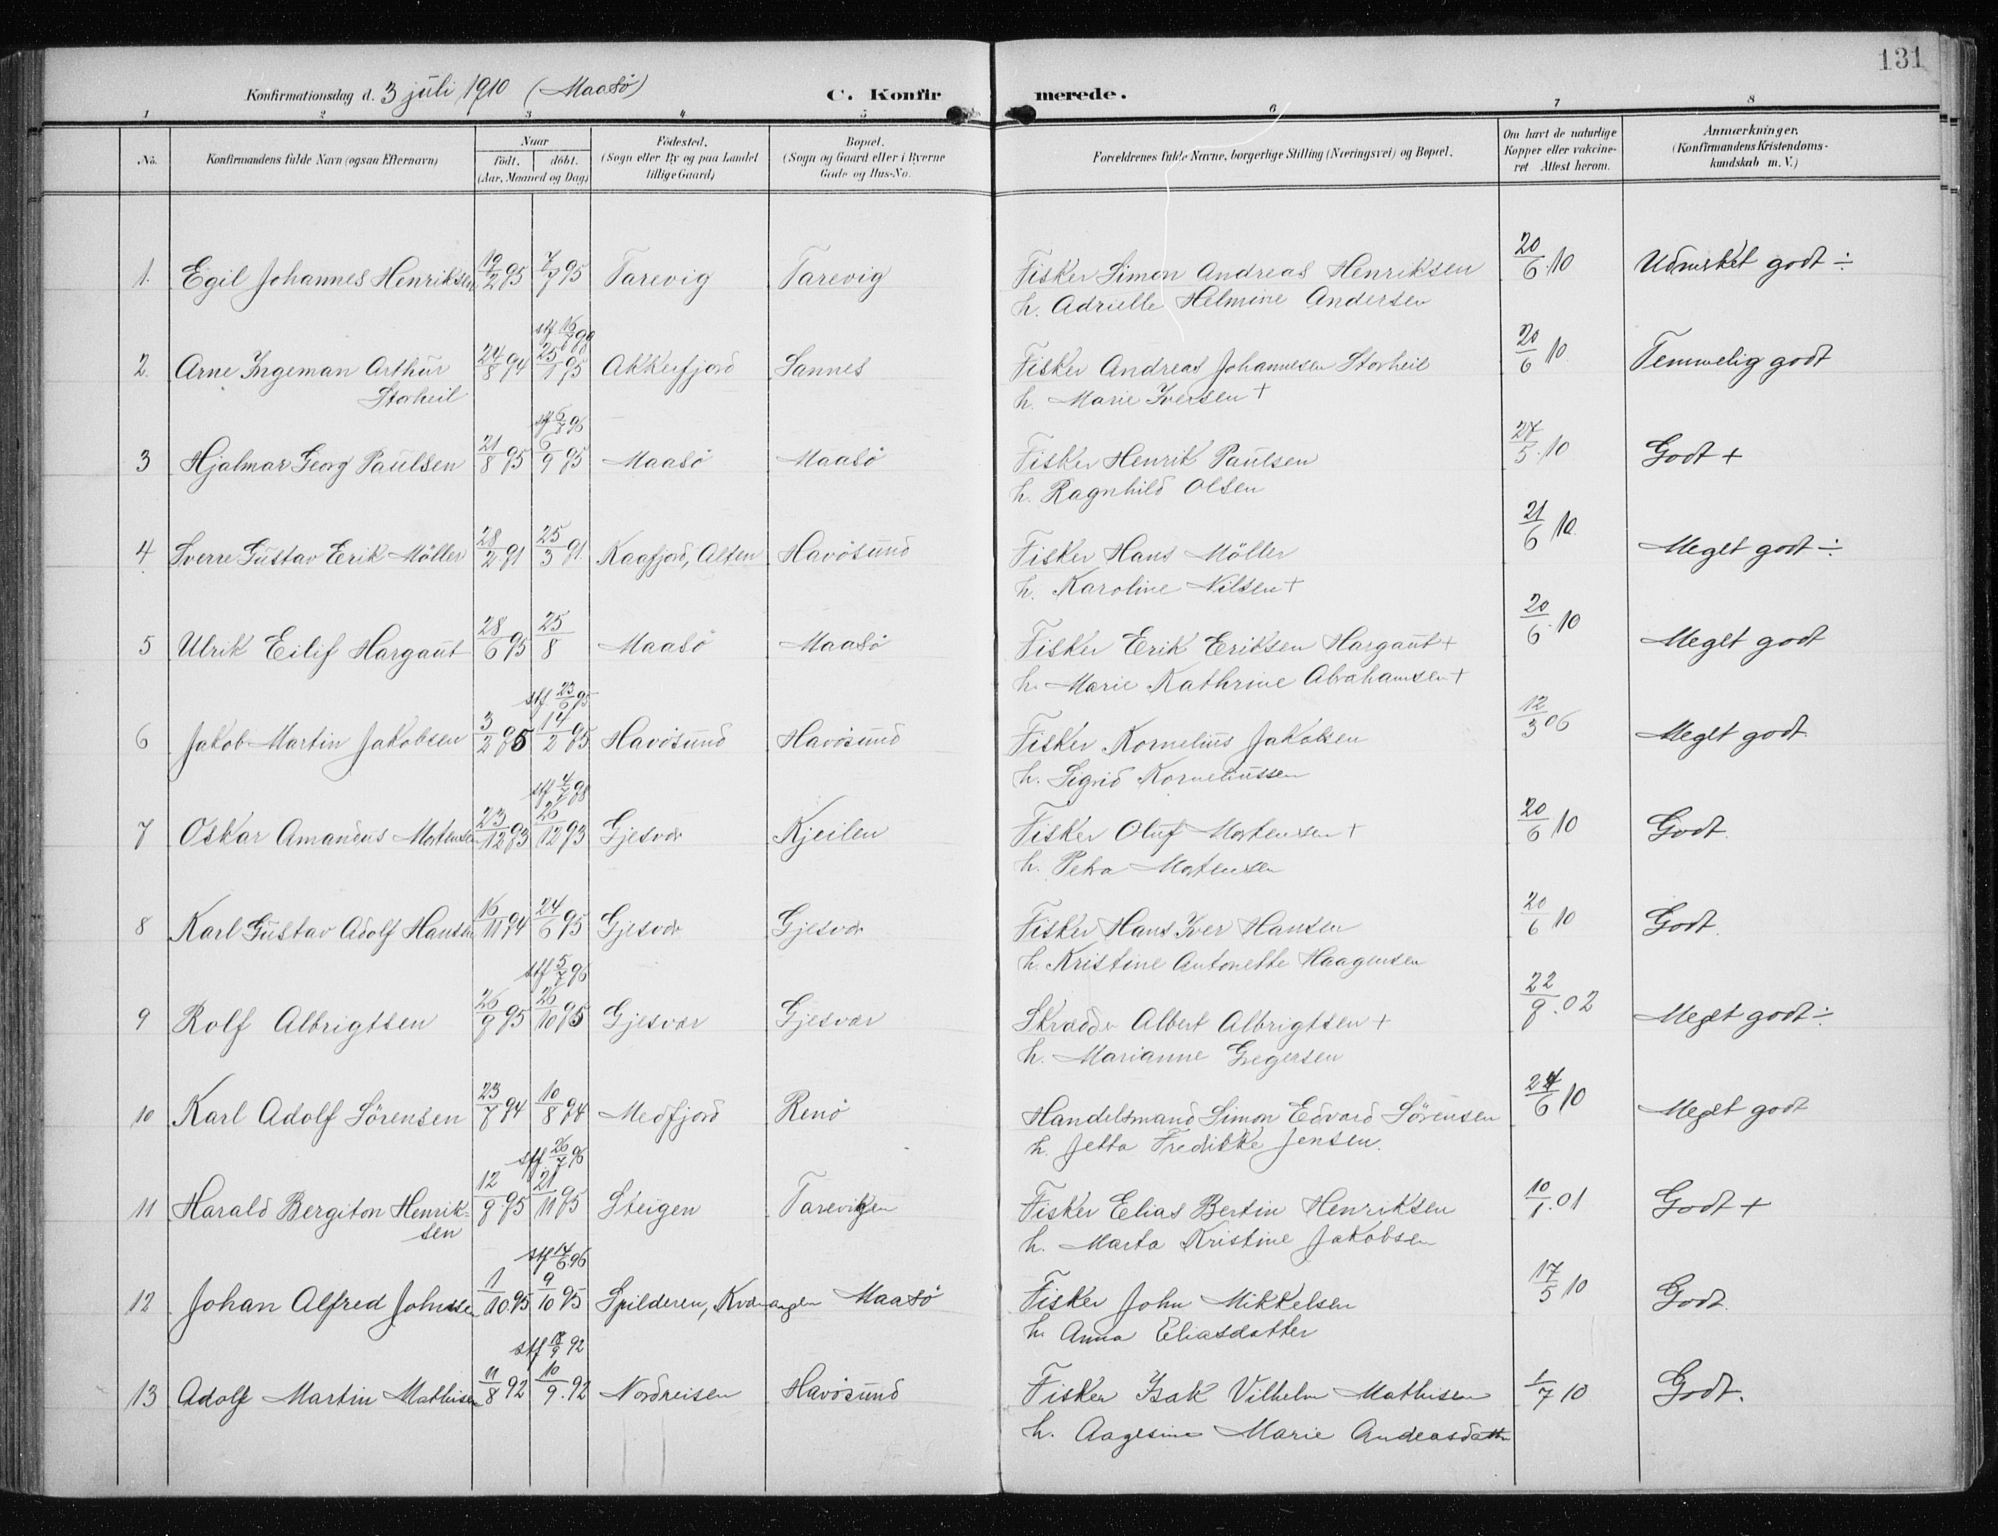 131
Konfirmationsdag d. 3 juli 1910 (Maasö) C. Konfirmerede.
1 2 3 4 5 6 7 8
No. Konfirmandens fulde Navn (ogsaa Efternavn) Naar födt. döbt. (Aar, Maaned og Dag) Födested. (Sogn eller By og paa Landet tillige Gaard) Bopæl. (Sogn og Gaard eller i Byerne Gade og Hus-No. Forældrenes fulde Navne, borgerlige Stilling (Næringsvei) og Bopæl. Om havt de naturlige Kopper eller vakcineret Attest herom. Anmærkninger. (Konfirmandens Kristendomskundskab m. V.)
1. Egil Johannes Henriksen 19/2 95 7/7 95 Tarevig Tarevig Fisker Simon Andreas Henriksen 20/6 10 Udmerket godt ÷
h. Adrielle Helmine Andersen
2. Arne Ingeman Arthur 24/8 94 25/1 95 Akkerfjord Sannes Fisker Andreas Johannesen Storheil 20/6 10 Temmelig godt
Storheil h. Marie Iversen +
3 Hjalmar Georg Paulsen 21/8 95 6/9 95 Maasö Maasö Fisker Henrik Paulsen 27/5 10 Godt +
h. Ragnhild Olsen
4 Sverre Gustav Erik Möller 28/2 91 25/3 91 Kaafjord, Alten Havösund Fisker Hans Möller 21/6 10 Meget godt ÷
h. Karoline Nilsen +
5 Ulrik Eilif Hargaut 28/6 95 25/8 Maasö Maasö Fisker Erik Eriksen Hargaut + 20/6 10 Meget godt
h. Marie Kathrine Abrahamsen +
stf 23/6 95
6 Jakob Martin Jakobsen 3/2 95 14/2 95 Havösund Havösund Fisker Kornelius Jakobsen 12/3 06 Meget godt
h. Sigrid Korneliussen
stf 4/7 98
7 Oskar Amandus Mortensen 23/12 93 26/12 93 Gjesvær Kjeilen Fisker Oluf Mortensen + 20/6 10 Godt.
h. Petra Mortensen
8 Karl Gustav Adolf Hansen 16/11 94 24/6 95 Gjesvær Gjesvær Fisker Hans Iver Hansen 20/6 10 Godt.
h. Kristine Antonette Haagensen
stf 5/7 96
9 Rolf Albrigtsen 26/9 95 26/10 95 Gjesvær Gjesvær Skrædder Albert Albrigtsen + 22/9 02 Meget godt ÷
h. Marianne Gregersen
10 Karl Adolf Sörensen 23/7 94 10/8 94 Medfjord Renö Handelsmand Simon Edvard Sörensen 24/6 10 Meget godt
h. Jetta Fredikke Jensen.
stf. 26/7 96
11 Harald Bergiton Henrik- 12/9 95 21/11 95 Steigen Tarevigen Fisker Elias Bertin Henriksen 10/1 01 Godt +
sen h. Marta Kristine Jakobsen
stf 14/6 96
12 Johan Alfred Johnsen 1/10 95 9/10 95 Spilderen, Kvænangen Maasö Fisker John Mikkelsen 17/5 10 Godt.
h. Anna Eliasdatter
13 Adolf Martin Mathisen 11/8 92 10/9 92 Nordreisen Havösund Fisker Isak Vilhelm Mathisen 1/7 10 Godt.
h. Aagesine Marie Andreasdatter